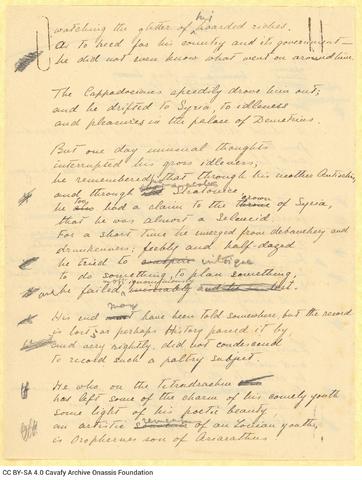 watching the glitter of his hoarded riches.
As to heed for his country and its government —
he did not even know what went on around him.
The Cappadocians speedily drove him out;
and he drifted to Syria, to idleness
and pleasures in the palace of Demetrius.
But one day unusual thoughts
interrupted his gross idleness;
he remembered that through his mother Antiochis,
and through Stratonice
he too had a claim to the crown throne of Syria,
that he was almost a Seleucid.
For a short time he emerged from debauchery and
drunkenness; feebly and half-dazed
he tried to intrigue
to do something, to plan something,
and he failed ignominiously
His end may have been told somewhere but the record
is lost; or perhaps History passed it by
and very rightly did not condescend
to record such a paltry subject.
He who on the tetradrachm
has left some of the charm of his comely youth
some light of his poetic beauty,
an artistic of an Ionian youth,
is Orophernes son of Ariarathes
CC BY-SA 4.0 Cavafy Archive Onassis Foundation